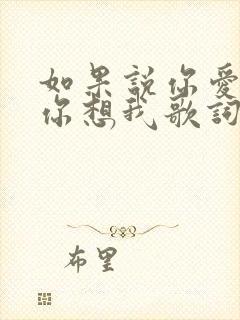 如果說你愛
你想我歌詞
布里